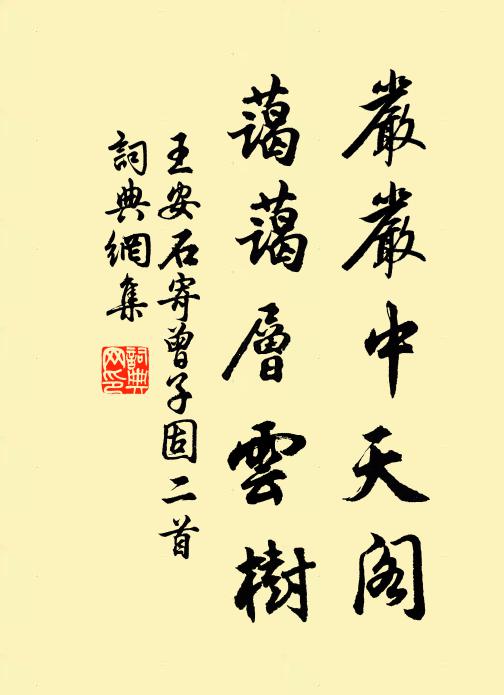 嚴嚴中天阁
藹藹層雲樹
王安石寄曾子固二首
詞典網集
詞典网印